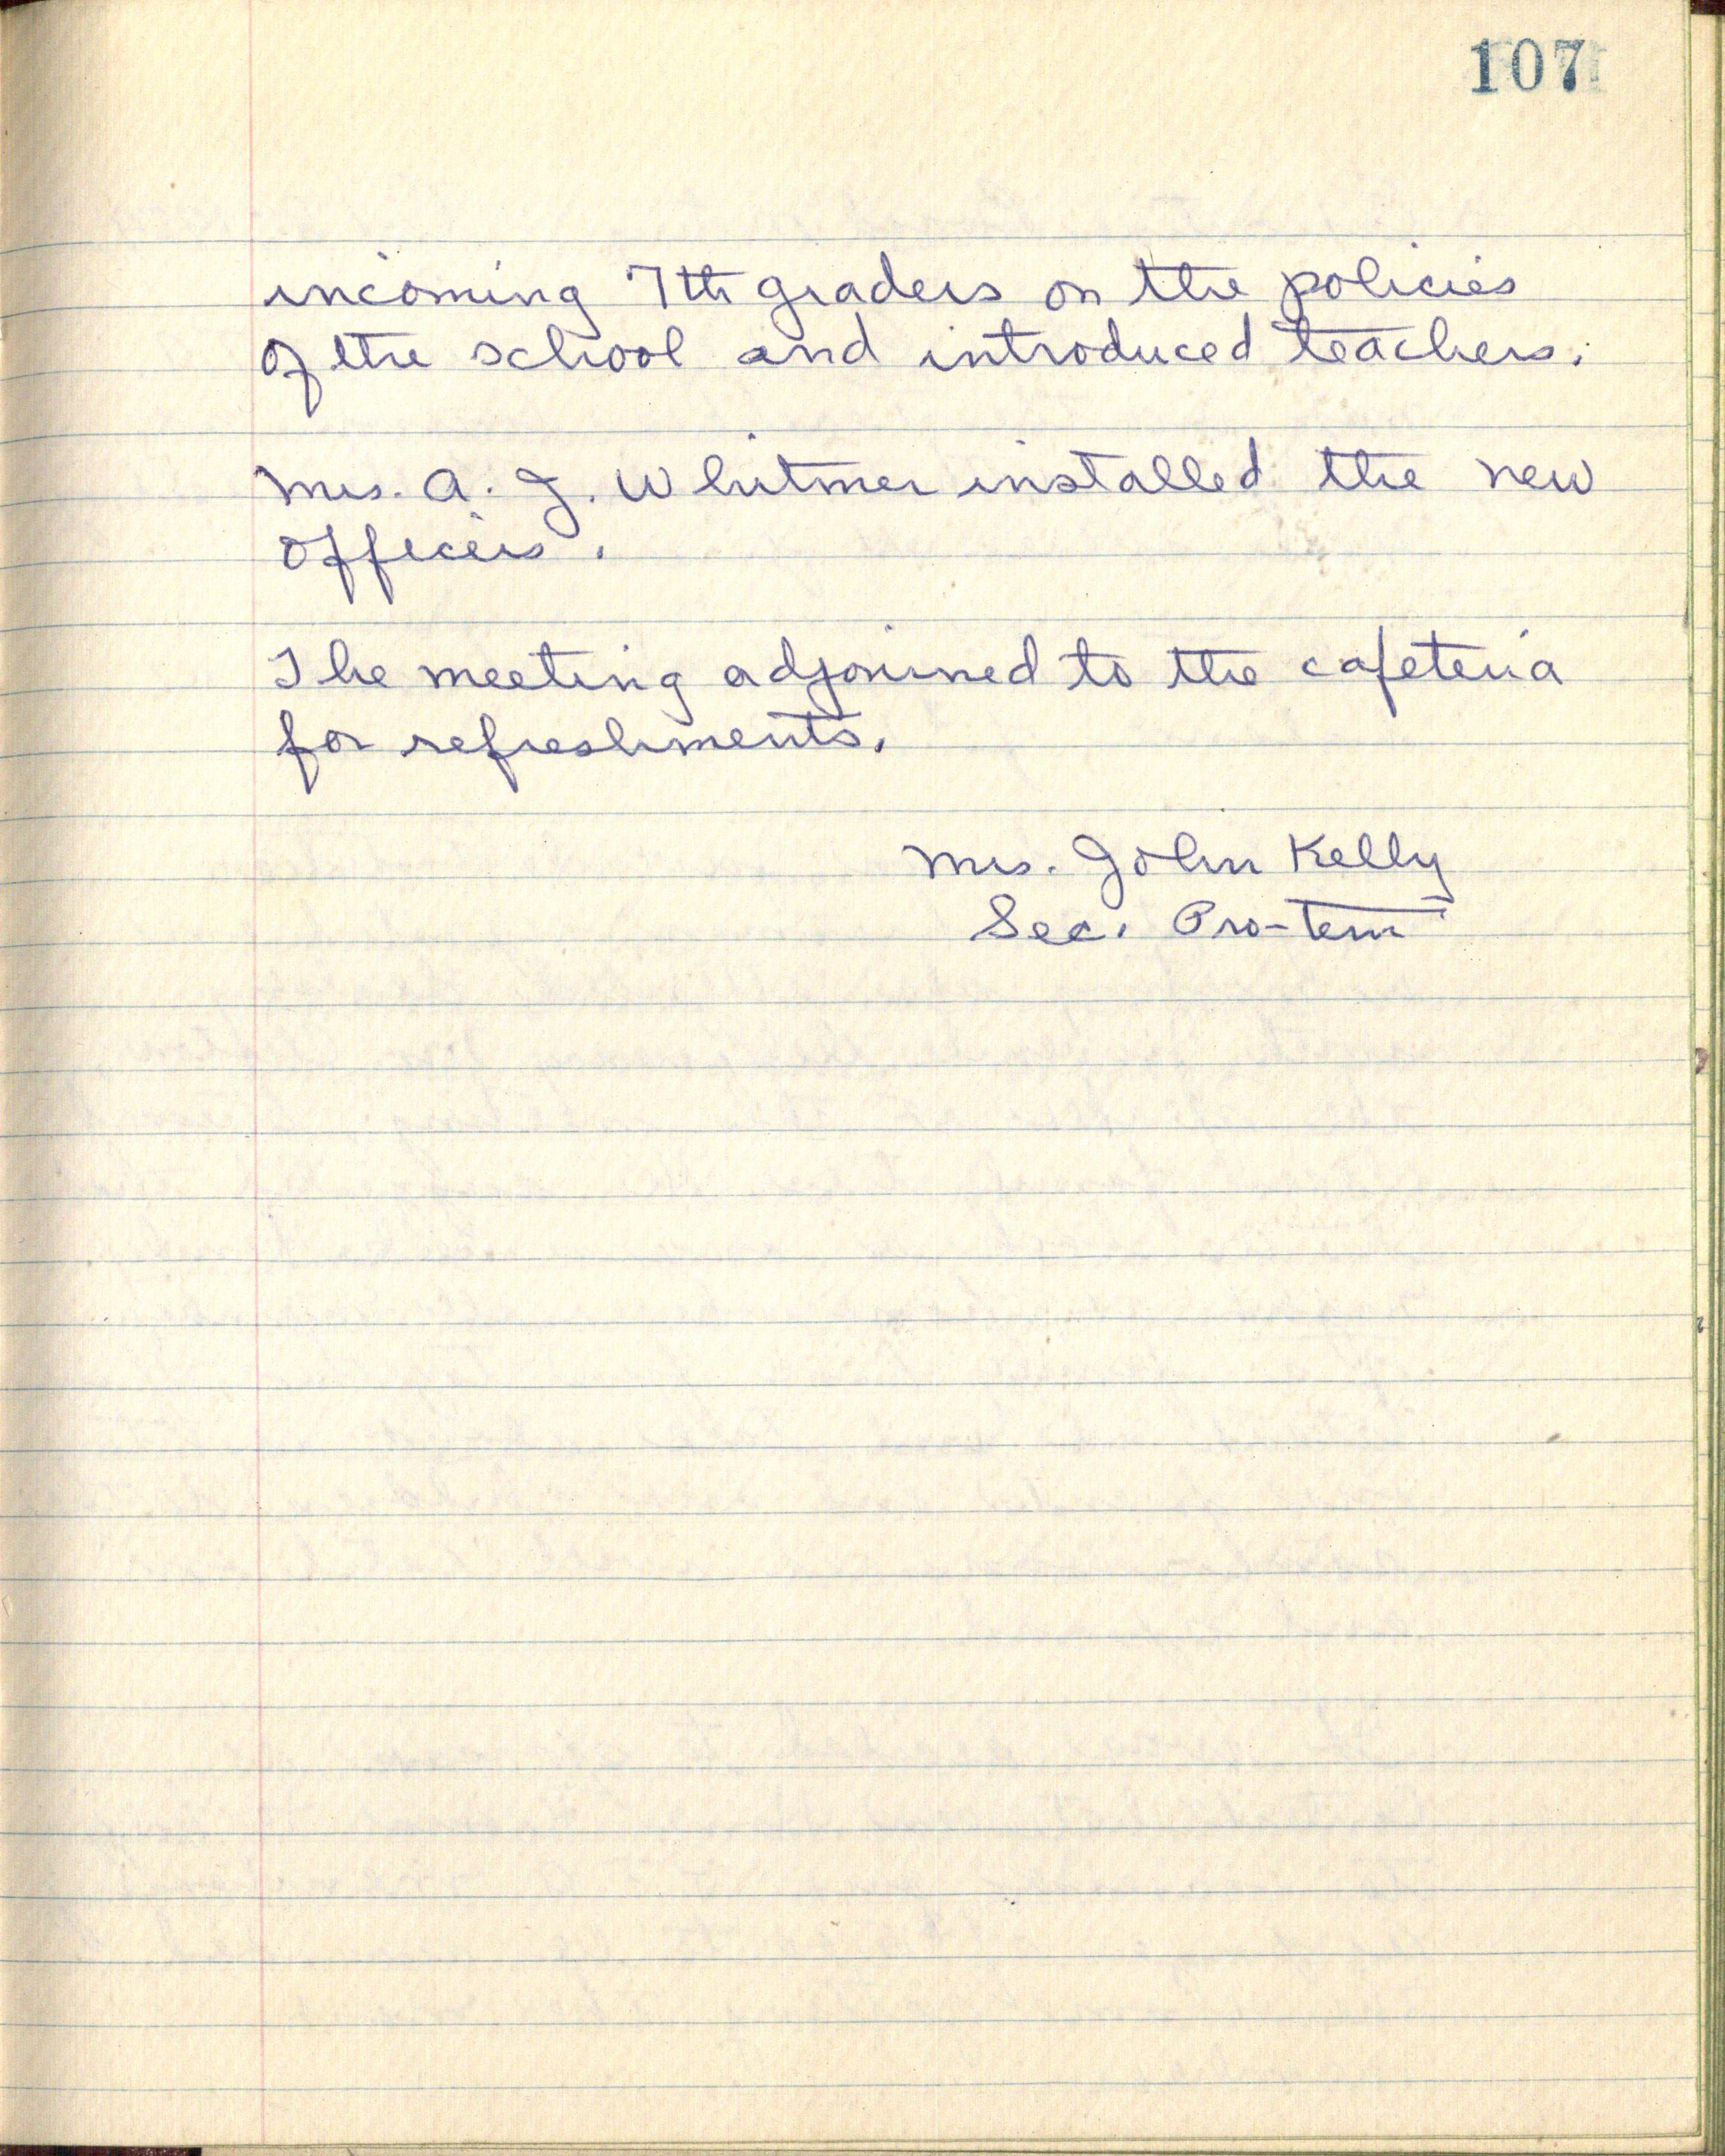 107
incoming 7th graders on the policies
of the school and introduced teachers.
Mrs. A. J. Whitmer installed the new
officers.
The meeting adjourned to the cafeteria
for refreshments.
Mrs. John Kelly
Sec. Pro-tem